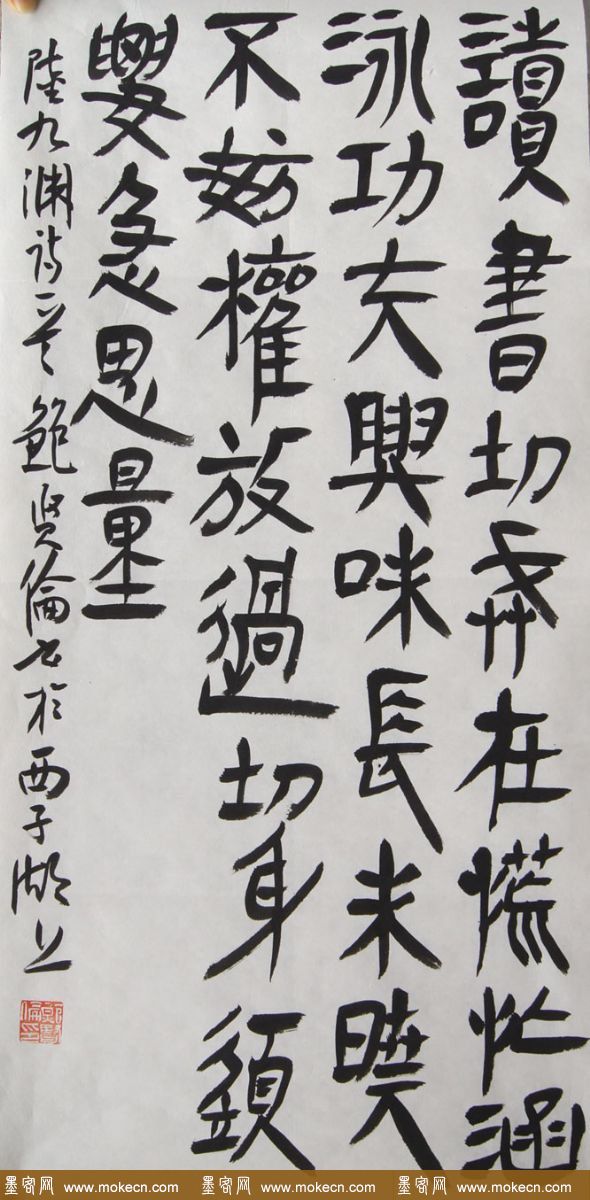 讀書切戒在慌忙涵
泳功夫興味長未曉
不妨權放過切身須
要急思量
陸九渊诗一首 鲍贤伦书於西子湖上
墨客网 www.mokecn.com 墨客网 www.mokecn.com 墨客网 www.mokecn.com 墨客网 www.mokecn.com